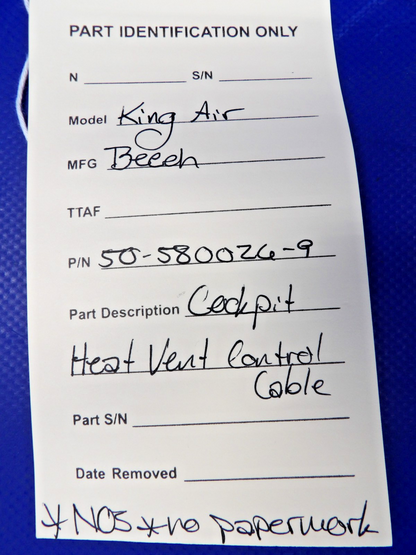 PART IDENTIFICATION ONLY
N S/N
Model King Air
MFG Beech
TTAF
P/N 50-580026-9
Part Description Cockpit
Heat Vent Control
Cable
Part S/N
Date Removed
*NOS *no paperwork